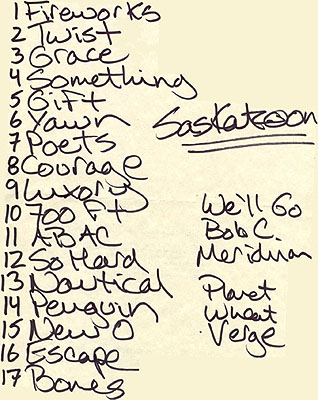 1 Fireworks
2 Twist
3 Grace
4 Something
5 Gift
6 Yawn
7 Poets
8 Courage
9 Luxory
10 700 ft
11 ABAC
12 So Hard
13 Nautical
14 Penguin
15 New O
16 Escape
17 Bones
Saskatoon
We'll Go
Bob C.
Meridian
Planet
Wheat
Verge